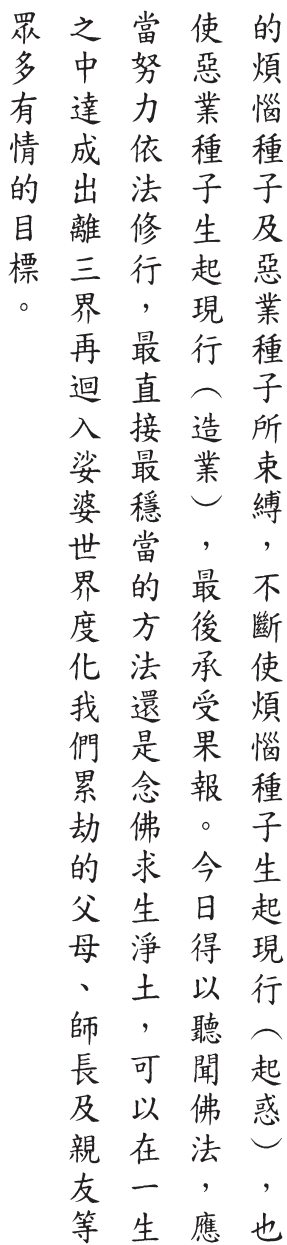 的煩惱種子及惡業種子所束縛，不斷使煩惱種子生起現行（起惑），也
使惡業種子生起現行（造業），最後承受果報。今日得以聽聞佛法，應
當努力依法修行，最直接最穩當的方法還是念佛求生淨土，可以在一生
之中達成出離三界再迴入娑婆世界度化我們累劫的父母、師長及親友等
眾多有情的目標。